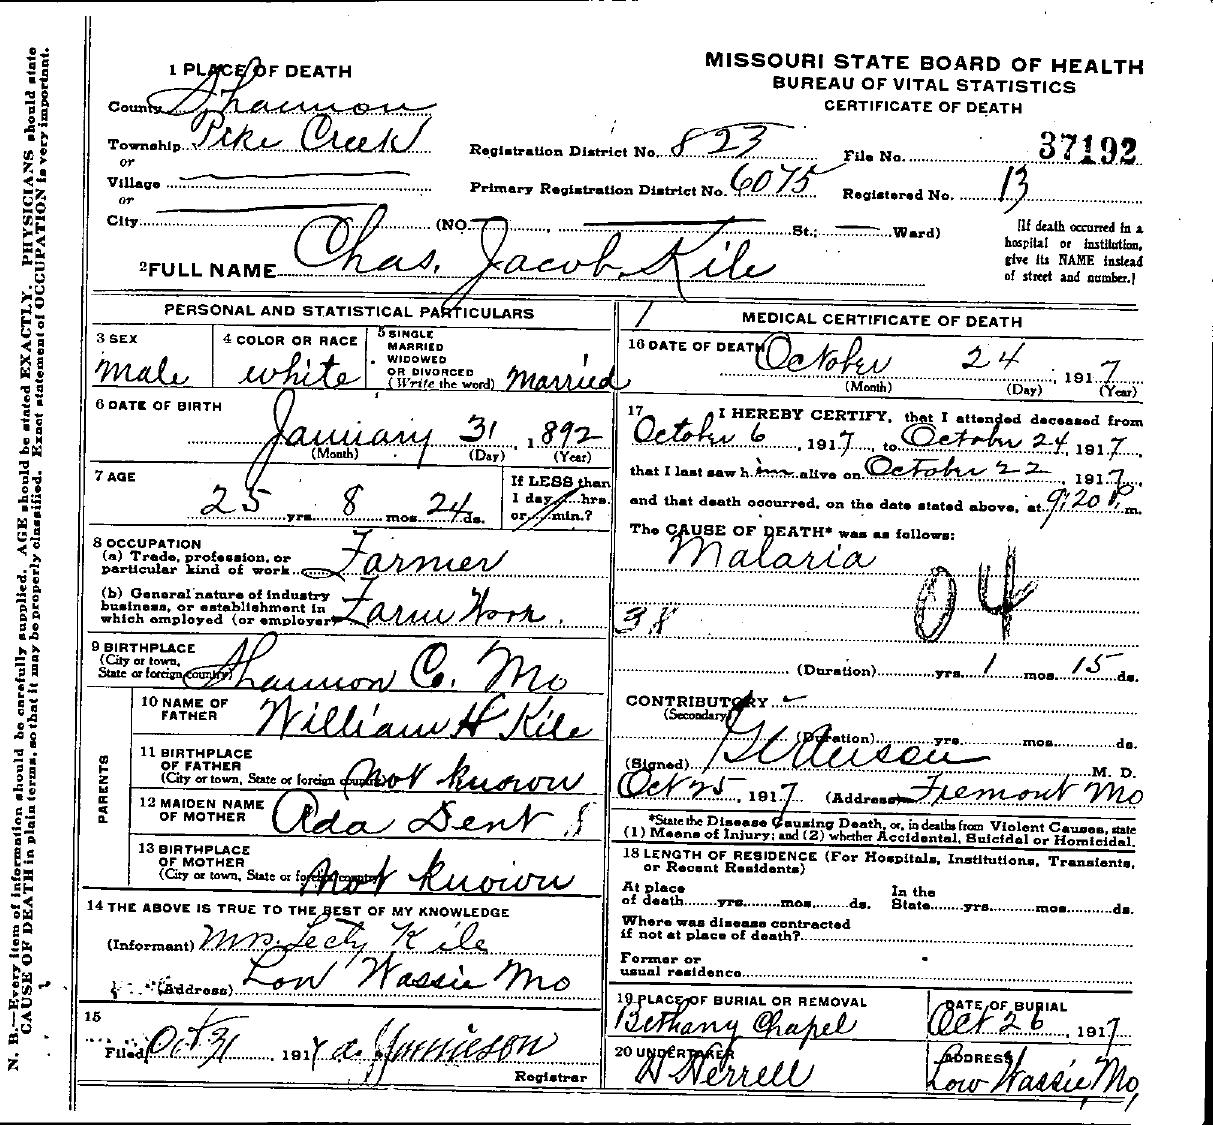 MISSOURI STATE BOARD OF HEALTH
BUREAU OF VITAL STATISTICS
CERTIFICATE OF DEATH
1 PLACE OF DEATH
County Shannon
Township Pike Creek
or
Village
or
City (NO. , St.; Ward)
Registration District No. 823
File No. 37192
Primary Registration District No. 6075
Registered No. 13
[If death occurred in a
hospital or institution,
give its NAME instead
of street and number.]
2 FULL NAME Chas. Jacob Kile
PERSONAL AND STATISTICAL PARTICULARS
3 SEX
male
4 COLOR OR RACE
white
5 SINGLE
MARRIED
WIDOWED
OR DIVORCED
(Write the word) Married
6 DATE OF BIRTH
January 31, 1892
(Month) (Day) (Year)
7 AGE
25 yrs. 8 mos. 24 ds.
If LESS than
1 day, hrs.
or min.?
8 OCCUPATION
(a) Trade, profession, or
particular kind of work Farmer
(b) General nature of industry
business, or establishment in
which employed (or employer) Farm Work.
9 BIRTHPLACE
(City or town,
State or foreign country) Shannon Co. Mo
PARENTS
10 NAME OF
FATHER William H Kile
11 BIRTHPLACE
OF FATHER
(City or town, State or foreign country) Not known
12 MAIDEN NAME
OF MOTHER Ada Dent
13 BIRTHPLACE
OF MOTHER
(City or town, State or foreign country) Not known
14 THE ABOVE IS TRUE TO THE BEST OF MY KNOWLEDGE
(Informant) Mrs. Lecty Kile
(Address) Low Wassie Mo
15
Filed Oct 31, 1917 Jamieson
Registrar
MEDICAL CERTIFICATE OF DEATH
16 DATE OF DEATH October 24, 1917
(Month) (Day) (Year)
17 I HEREBY CERTIFY, that I attended deceased from
October 6, 1917, to October 24, 1917,
that I last saw him alive on October 22, 1917,
and that death occurred, on the date stated above, at 9:20 P m.
The CAUSE OF DEATH* was as follows:
Malaria
04
38
(Duration) yrs. 1 mos. 15 ds.
CONTRIBUTORY
(Secondary)
(Duration) yrs. mos. ds.
(Signed) M. D.
Oct 25, 1917 (Address) Fremont Mo
*State the Disease Causing Death, or, in deaths from Violent Causes, state
(1) Means of Injury; and (2) whether Accidental, Suicidal or Homicidal.
18 LENGTH OF RESIDENCE (For Hospitals, Institutions, Transients,
or Recent Residents)
At place
of death yrs. mos. ds.
In the
State yrs. mos. ds.
Where was disease contracted
if not at place of death?
Former or
usual residence
19 PLACE OF BURIAL OR REMOVAL
Bethany Chapel
DATE OF BURIAL
Oct 26, 1917
20 UNDERTAKER
Herrell
ADDRESS
Low Wassie, Mo,
N. B.—Every item of information should be carefully supplied. AGE should be stated EXACTLY. PHYSICIANS should state
CAUSE OF DEATH in plain terms, so that it may be properly classified. Exact statement of OCCUPATION is very important.